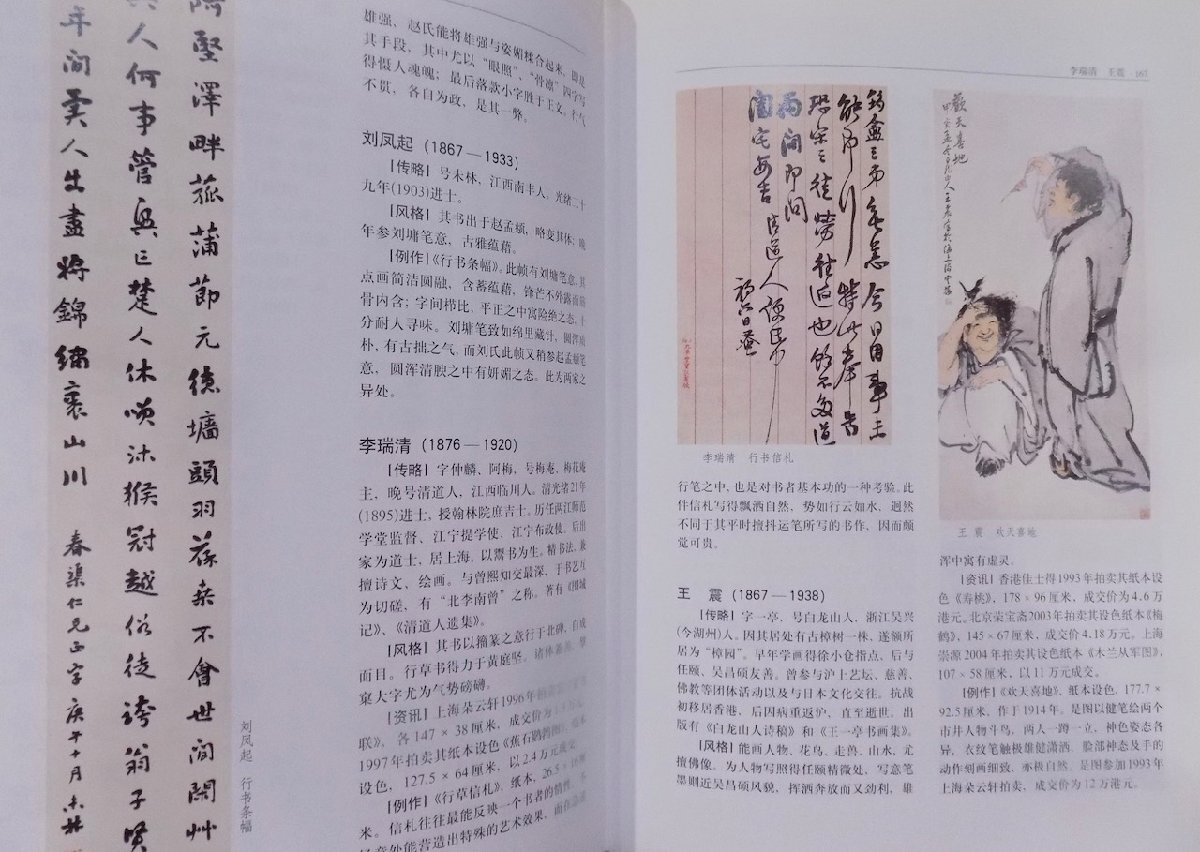 阿壄澤畔菰蒲節元億墻頭羽葆桑不會世間閑艸
人何事管興亡楚人休唤沐猴冠越俗徒誇翁子賢
年間矣人生畫將錦繡裹山川
春渠仁兄正字庚午十月未林
刘凤起 行书条幅
雄强、赵氏能将雄强与姿媚糅合起来，即是
其手段，其中尤以“眼照”、“骨凛”四字写
得慑人魂魄；最后落款小字胜于王文。行气
不贯，各自为政，是其一弊。
刘凤起 (1867—1933)
[传略] 号未林，江西南丰人，光绪二十
九年(1903)进士。
[风格] 其书出于赵孟頫，略变其体；晚
年参刘墉笔意，古雅蕴藉。
[例作]《行书条幅》。此帧有刘墉笔意，其
点画简洁圆融、含蓄蕴藉，锋芒不外露而筋
骨内含；字间栉比，平正之中寓险绝之态，十
分耐人寻味。刘墉笔致如绵里藏针，圆浑质
朴、有古拙之气，而刘氏此帧又稍参赵孟頫笔
意，圆浑清腴之中有妍媚之态。此为两家之
异处。
李瑞清 (1876—1920)
[传略] 字仲麟、阿梅，号梅庵、梅花庵
主，晚号清道人，江西临川人。清光绪21年
(1895)进士，授翰林院庶吉士。历任两江师范
学堂监督、江宁提学使、江宁布政使。后出
家为道士，居上海，以鬻书为生。精书法，兼
擅诗文、绘画。与曾熙知交最深，于书艺互
为切磋，有“北李南曾”之称。著有《围城
记》、《清道人遗集》。
[风格] 其书以籀篆之意行于北碑，自成
面目。行草书得力于黄庭坚。诸体兼善，擘
窠大字尤为气势磅礴。
[资讯] 上海朵云轩1996年拍卖其
联》，各147×38厘米，成交价为
1997年拍卖其纸本设色《蕉石鹦鹉图》，
设色，127.5×64厘米，以2.4万元成交。
[例作]《行草信札》，纸本，26.5×
米。信札往往最能反映一个书者的情性，
意外能营造出特殊的艺术效果，而在
李瑞清 王震 167
筠盦三弟無恙今日因事未
能即行特此奉告
恐宋三往勞往返也餘不多道
为問即問
闔宅安吉 清道人便
初六日
李瑞清 行书信札
歡天喜地
王震 欢天喜地
行笔之中，也是对书者基本功的一种考验。此
件信札写得飘洒自然，势如行云如水，迥然
不同于其平时擅抖运笔所写的书作，因而颇
觉可贵。
王 震 (1867—1938)
[传略] 字一亭，号白龙山人，浙江吴兴
(今湖州)人。因其居处有古樟树一株，遂额所
居为“樟园”。早年学画得徐小仓指点，后与
任颐、吴昌硕友善。曾参与沪上艺坛、慈善、
佛教等团体活动以及与日本文化交往。抗战
初移居香港，后因病重返沪，直至逝世。出
版有《白龙山人诗稿》和《王一亭书画集》。
[风格] 能画人物、花鸟、走兽、山水，尤
擅佛像。为人物写照得任颐精微处，写意笔
墨则近吴昌硕风貌，挥洒奔放而又劲利，雄
浑中寓有虚灵。
[资讯] 香港佳士得1993年拍卖其纸本设
色《寿桃》，178×96厘米，成交价为4.6万
港元。北京荣宝斋2003年拍卖其设色纸本《梅
鹤》，145×67厘米，成交价4.18万元。上海
崇源2004年拍卖其设色纸本《木兰从军图》，
107×58厘米，以11万元成交。
[例作]《欢天喜地》，纸本设色，177.7×
92.5厘米，作于1914年。是图以健笔绘两个
市井人物斗鸟，两人一蹲一立，神色姿态各
异，衣纹笔触极雄健潇洒，脸部神态及手的
动作刻画细致，亦极自然。是图参加1993年
上海朵云轩拍卖，成交价为12万港元。